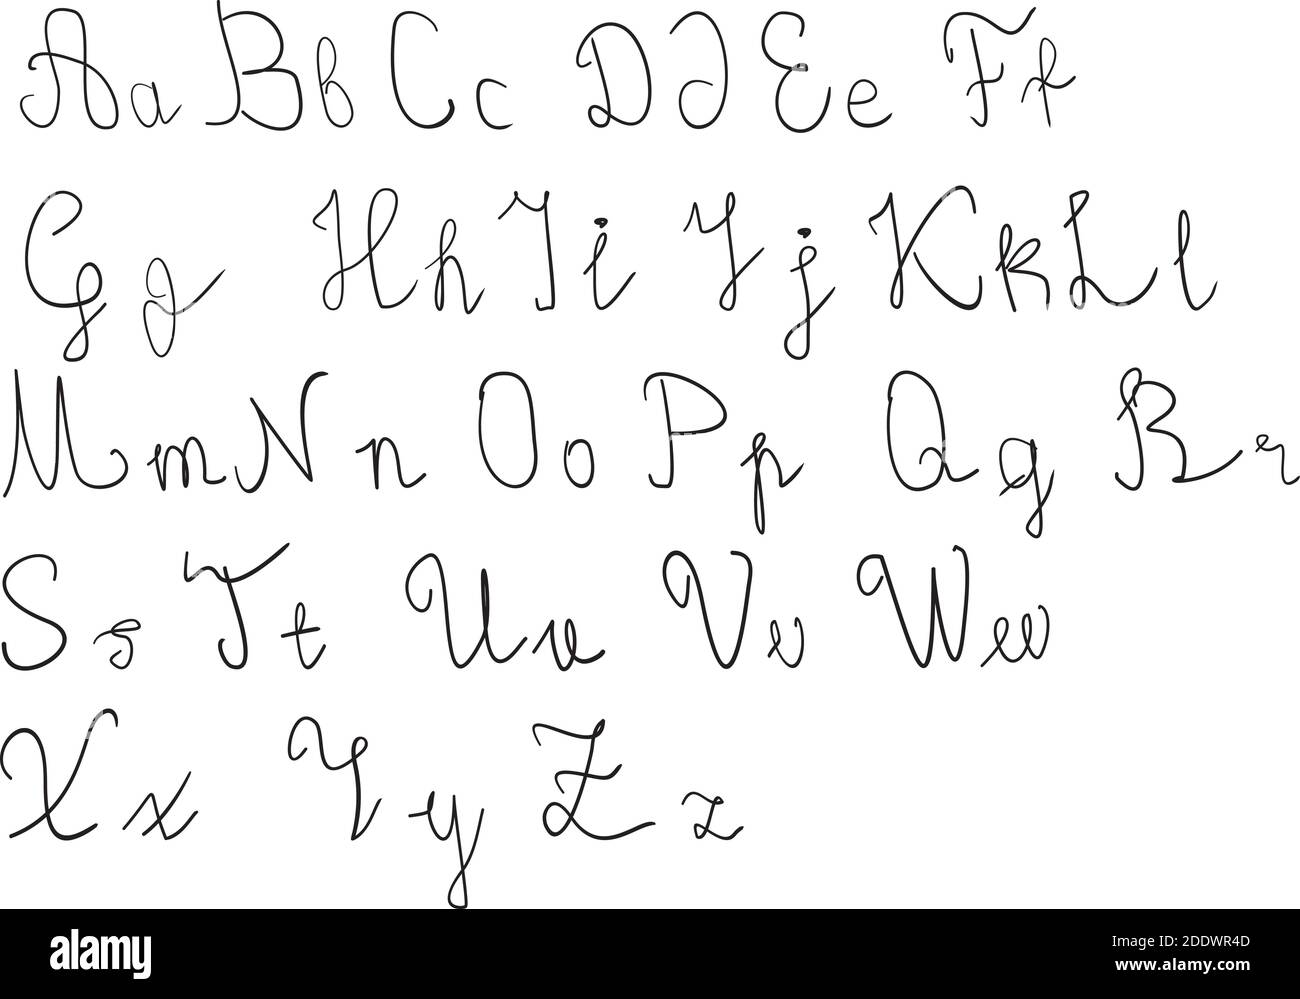 Aa Bb Cc Dd Ee Ff
Gg Hh Ii Jj Kk Ll
Mm Nn Oo Pp Qq Rr
Ss Tt Uu Vv Ww
Xx Yy Zz
alamy
Image ID: 2DDWR4D
www.alamy.com